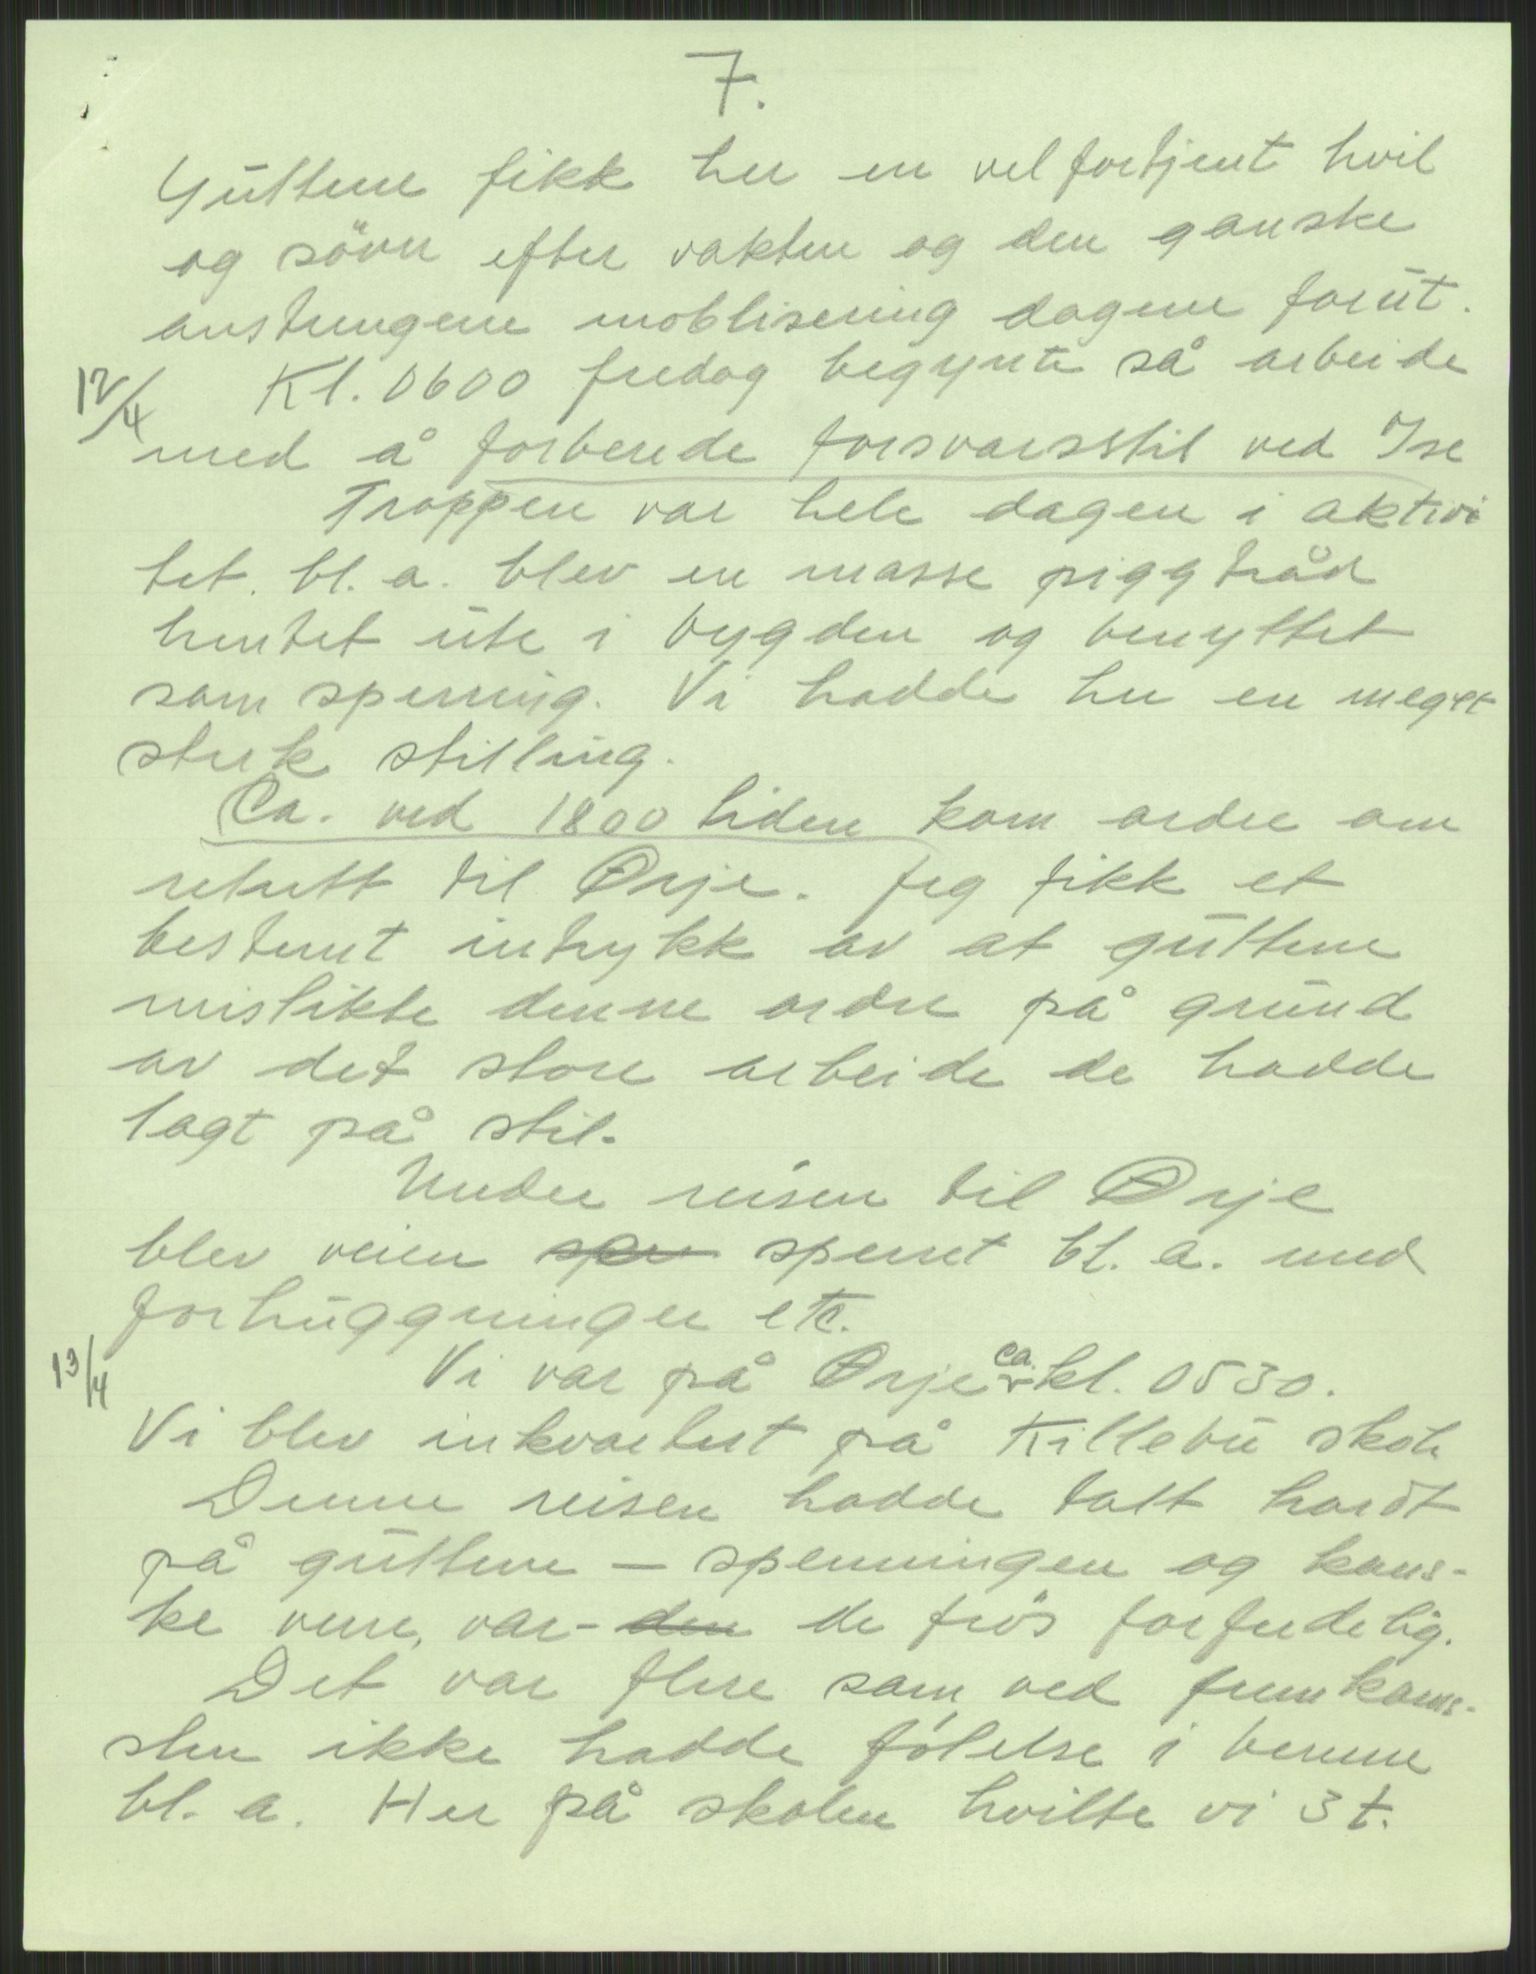 7.
Guttene fikk her en velfortjent hvil
og sövn efter vakten og den ganske
anstrengene moblisering dagene forut.
12/4 Kl. 0600 fredag begynte så arbeide
med å forberede forsvarsstil ved Ise
Troppen var hele dagen i aktivi
tet. bl. a. blev en masse piggtråd
hentet ute i bygden og benyttet
som sperring. Vi hadde her en meget
sterk stilling.
Ca. ved 1800 tiden kom ordre om
retrett til Ørje. Jeg fikk et
bestemt intrykk av at guttene
mislikte denne ordre på grund
av det store arbeide de hadde
lagt på stil.
Under reisen til Ørje
blev veien sper sperret bl. a. med
forhuggninger etc.
13/4 Vi var på Ørje ca. kl. 0530.
Vi blev inkvartert på Killebu skole
Denne reisen hadde tatt hardt
på guttene – spenningen og kans-
ke verre, var - den de frös forferdelig.
Det var flere som ved fremkom-
sten ikke hadde fölelse i benene
bl. a. Her på skolen hvilte vi 3 t.